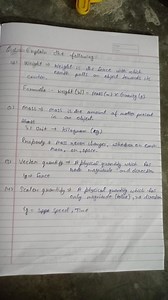 Explain the following:
(i) Weight → Weight is the force with which
earth pulls an object towards its
center.
Formula → Weight (W) = Mass (m) × Gravity (g)
(ii) Mass → Mass is the amount of matter present
in an object.
SI unit → kilogram (kg)
Property → Mass never changes, whether on earth
moon, or space.
Vector quantity → A physical quantity which has
both magnitude and direction
eg → Force
Scalar quantity → A physical quantity which has
only magnitude (size), no direction
eg → Speed, Time